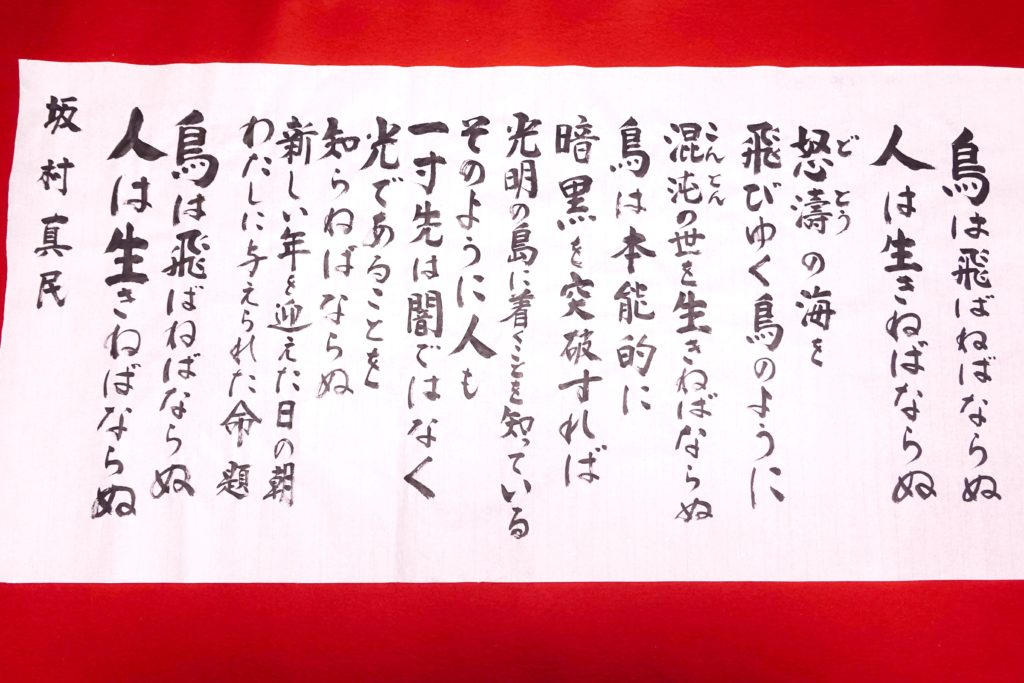 鳥は飛ばねばならぬ
人は生きねばならぬ
怒濤の海を
どとう
飛びゆく鳥のように
混沌の世を生きねばならぬ
こんとん
鳥は本能的に
暗黒を突破すれば
光明の島に着くことを知っている
そのように人も
一寸先は闇ではなく
光であることを
知らねばならぬ
新しい年を迎えた日の朝
わたしに与えられた命題
鳥は飛ばねばならぬ
人は生きねばならぬ
坂村真民